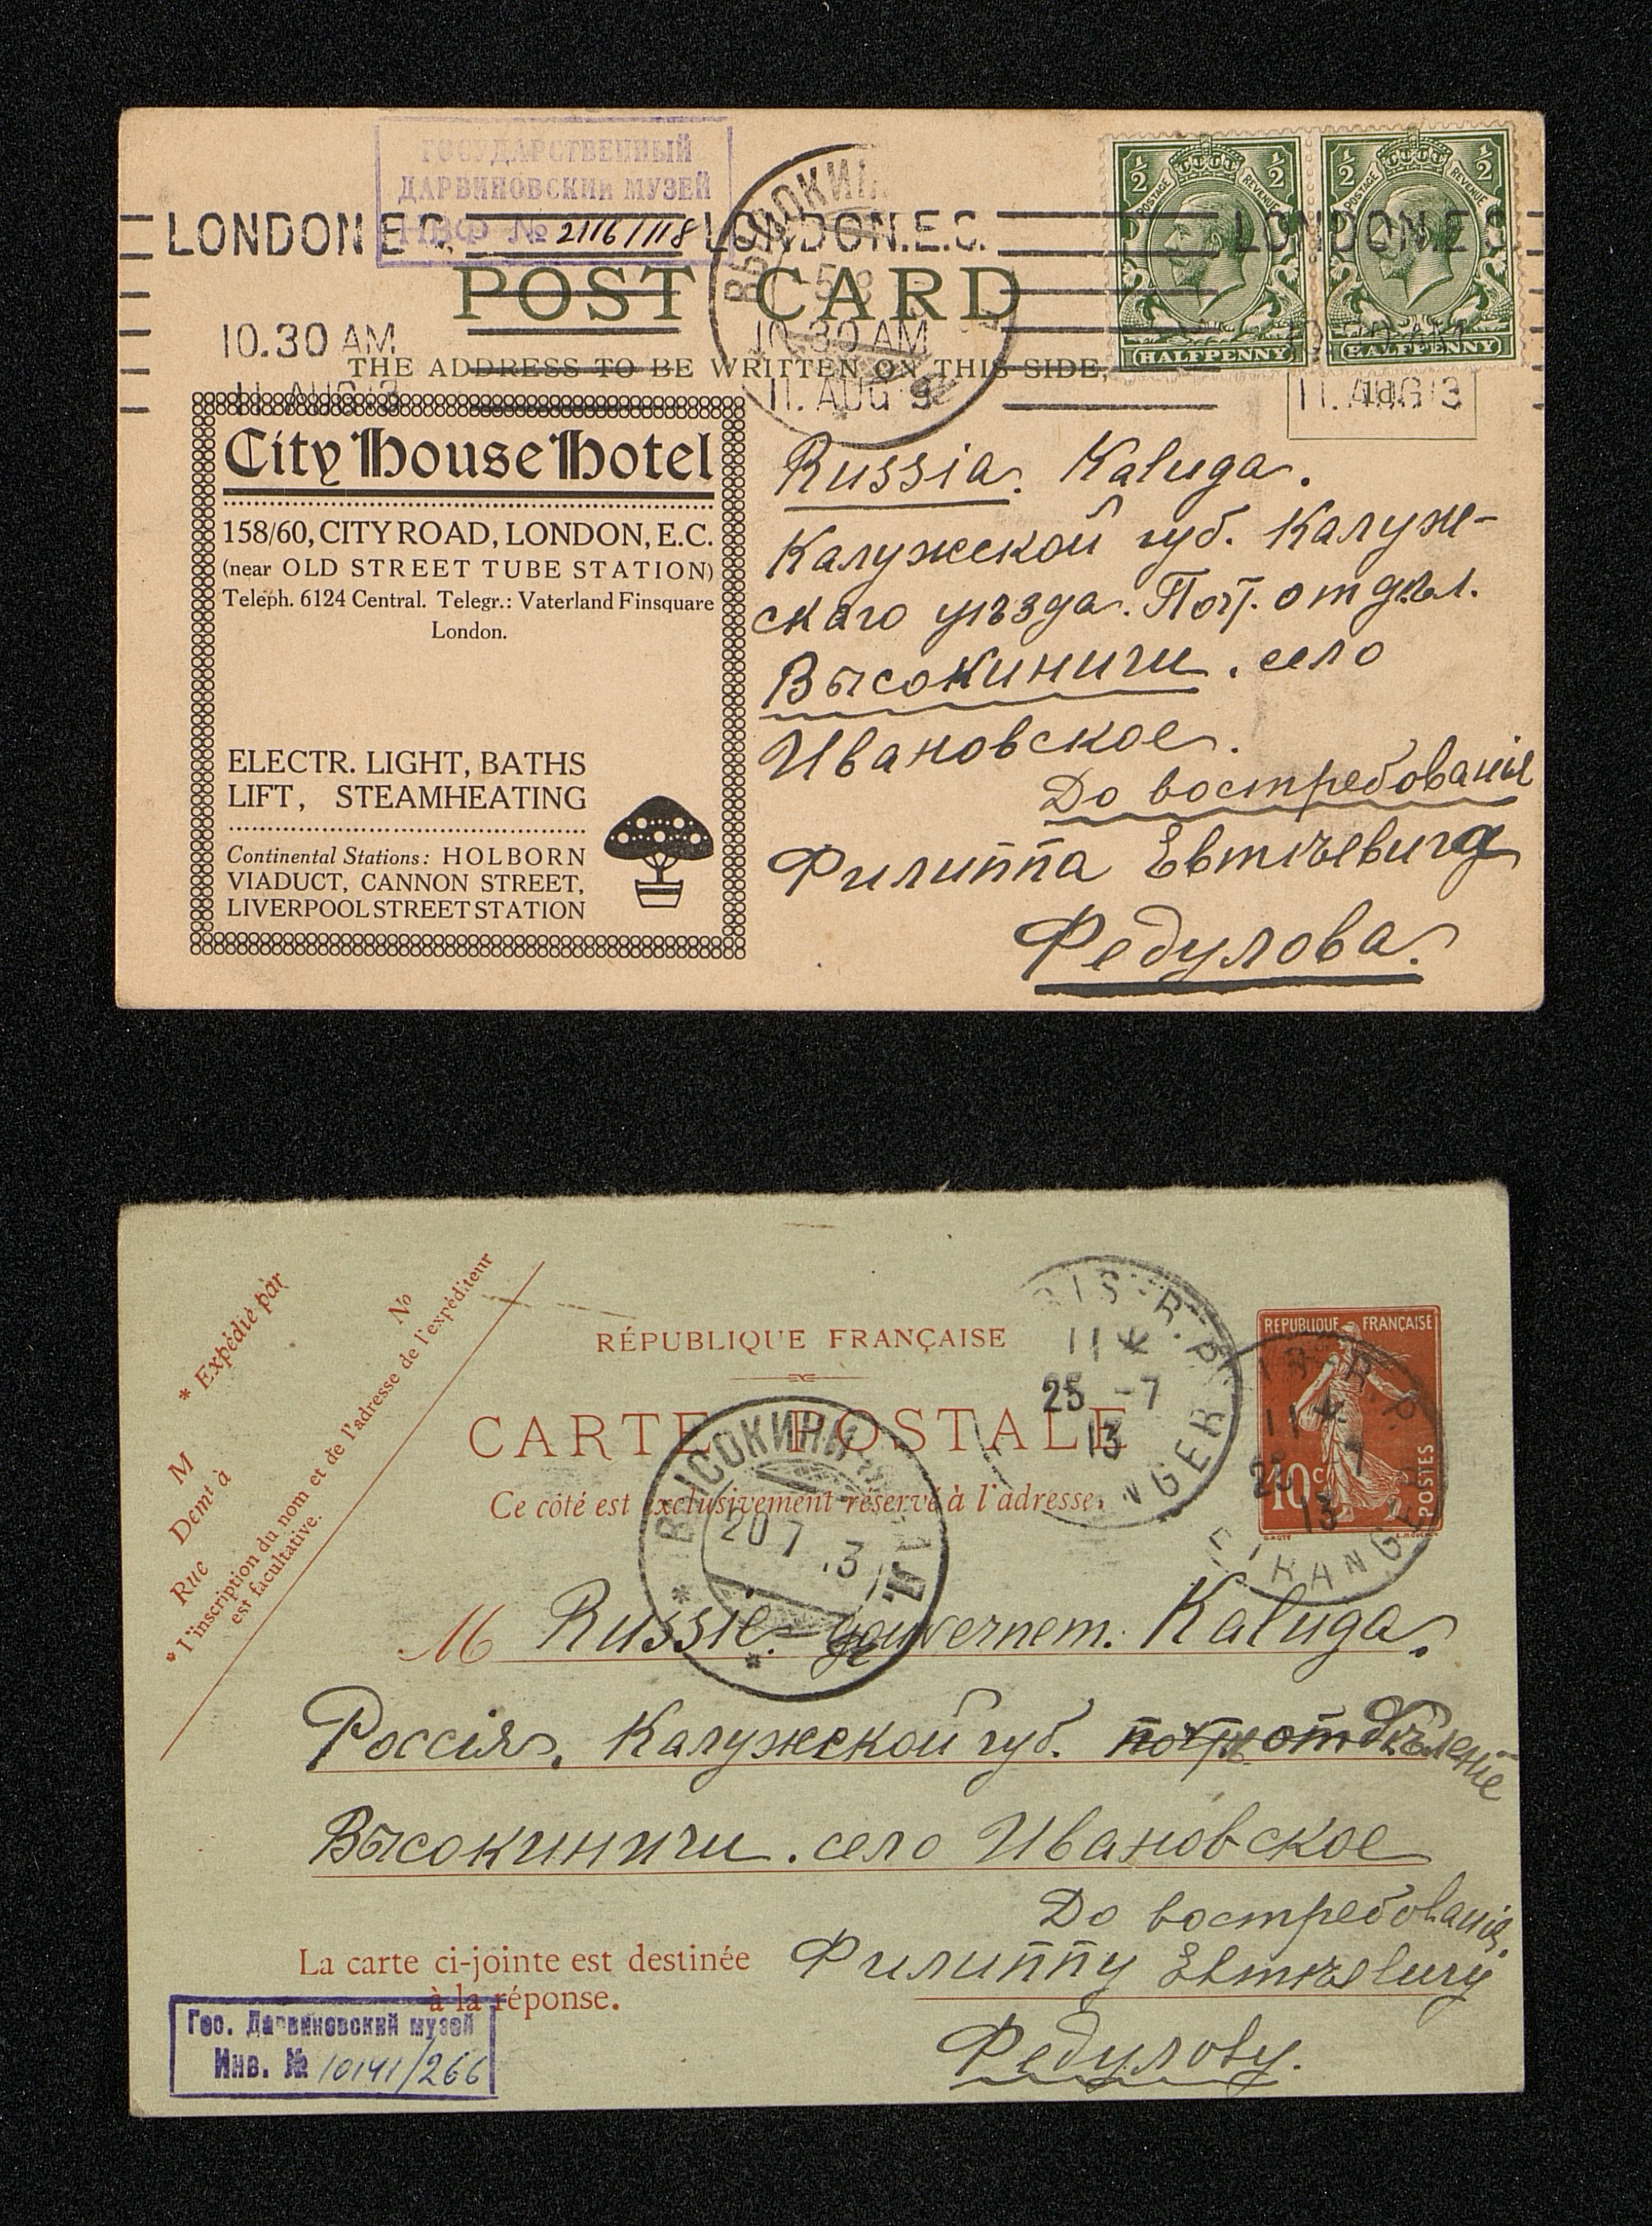 ГОСУДАРСТВЕННЫЙ
ДАРВИНОВСКИЙ МУЗЕЙ
НВФ № 2116/118
LONDON E.C. LONDON.E.C. LONDON.E.C.
ВЫСОКИНИ
POST CARD
10.30 AM 10.30 AM
THE ADDRESS TO BE WRITTEN ON THIS SIDE,
11. AUG 13 11. AUG 11. AUG 13
1/2 POSTAGE REVENUE 1/2
HALFPENNY
1/2 POSTAGE REVENUE 1/2
HALFPENNY
City House Hotel
158/60, CITY ROAD, LONDON, E.C.
(near OLD STREET TUBE STATION)
Teleph. 6124 Central. Telegr.: Vaterland Finsquare
London.
ELECTR. LIGHT, BATHS
LIFT, STEAMHEATING
Continental Stations: HOLBORN
VIADUCT, CANNON STREET,
LIVERPOOL STREET STATION
Russia. Kaluga.
Калужской губ. Калуж-
скаго уѣзда. Поч. отдѣл.
Высокиничи. село
Ивановское.
До востребованія
Филиппа Евтѣевича
Федулова.
* Expédié par
M
Demt à
Rue No
* L'inscription du nom et de l'adresse de l'expéditeur
est facultative.
RÉPUBLIQUE FRANÇAISE
CARTE POSTALE
Ce côté est exclusivement réservé à l'adresse.
RÉPUBLIQUE FRANÇAISE
10c
POSTES
11
25 -7
13
ВЫСОКИНИЧИ
20 7 13
M Russie. gouvernem. Kaluga.
Россія. Калужской губ. почт отдѣленіе
Высокиничи. село Ивановское
До востребованія.
La carte ci-jointe est destinée
à la réponse.
Филиппу Евтѣевичу
Федулову.
Гос. Дарвиновский музей
Инв. № 10141/266